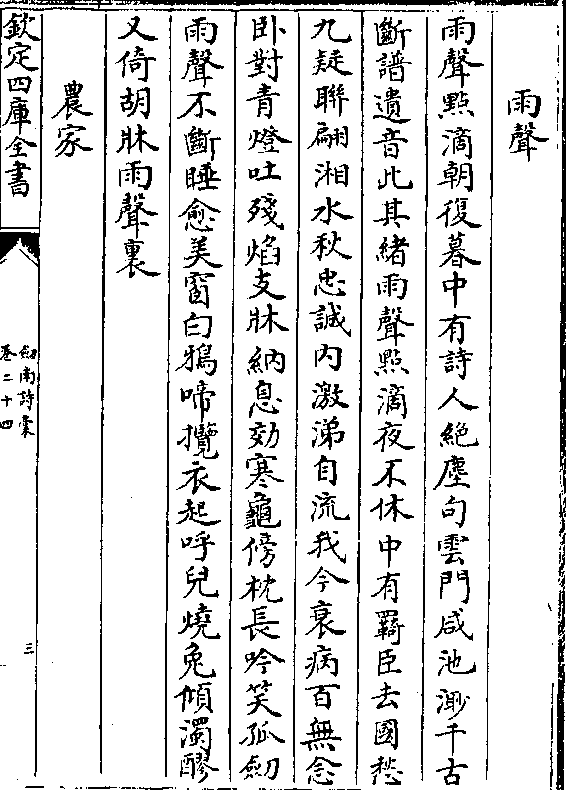 雨聲
雨聲點滴朝復暮中有詩人絶塵句雲門咸池渺千古
斷譜遺音此其緒雨聲點滴夜不休中有羈臣去國愁
九疑聯翩湘水秋忠誠内激涕自流我今衰病百無念
卧對青燈吐殘焰支牀納息効寒龜傍枕長吟笑孤劒
雨聲不斷睡愈美窗白鴉啼攬衣起呼兒燒兔傾濁醪
又倚胡牀雨聲裏
農家
欽定四庫全書
劒南詩槀
卷二十四
三